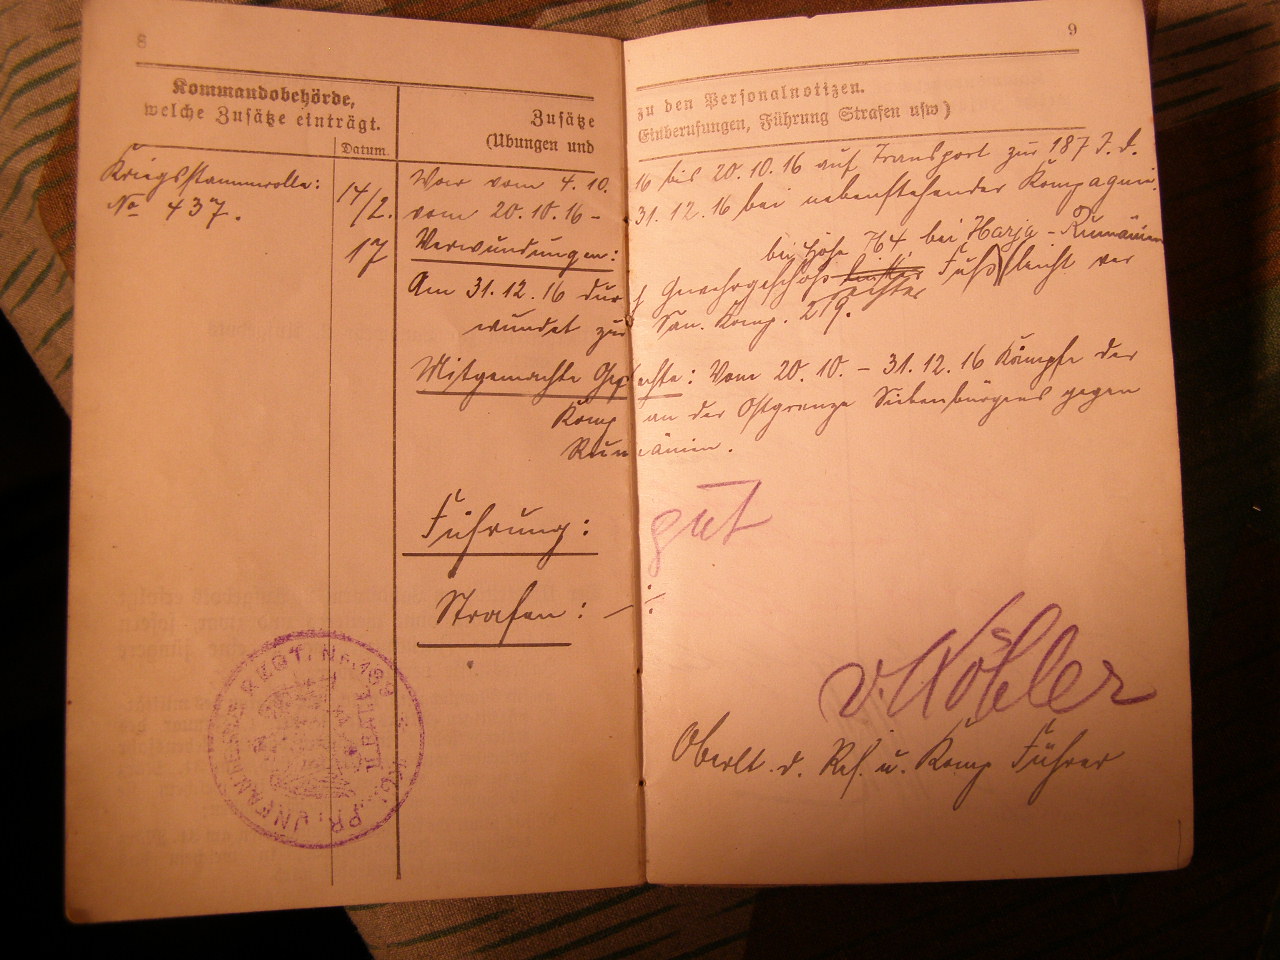 8
Kommandobehörde,
welche Zusätze einträgt.
Datum.
Zusätze
(Übungen und
9
zu den Personalnotizen.
Einberufungen, Führung Strafen usw)
Kriegsstammrolle:
No 437.
14/2.
17
War vom 4.10.16 bis 20.10.16 auf Transport zur 187 I. d.
vom 20.10.16 - 31.12.16 bei nebenstehender Kompagnie.
Verwundungen:
bei Höhe 764 bei Harja - Rumänien
Am 31.12.16 durch Gewehrgeschoß linker Fuß leicht ver
rechter
wundet zur San. Komp. 219.
Mitgemachte Gefechte: Vom 20.10. - 31.12.16 Kämpfe der
Komp an der Ostgrenze Siebenbürgens gegen
Rumänien.
Führung: gut
Strafen: -:-
PR. INFANTERIE REGT. Nr.
v. Köhler
Oberlt. d. Res. u. Komp Führer